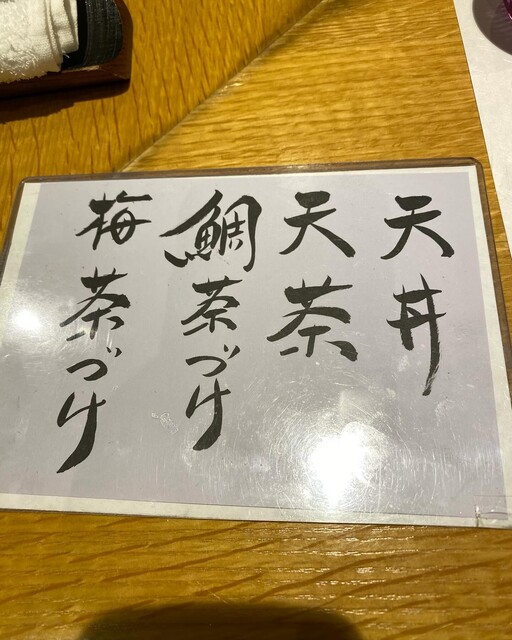 天丼
天茶
鯛茶づけ
梅茶づけ